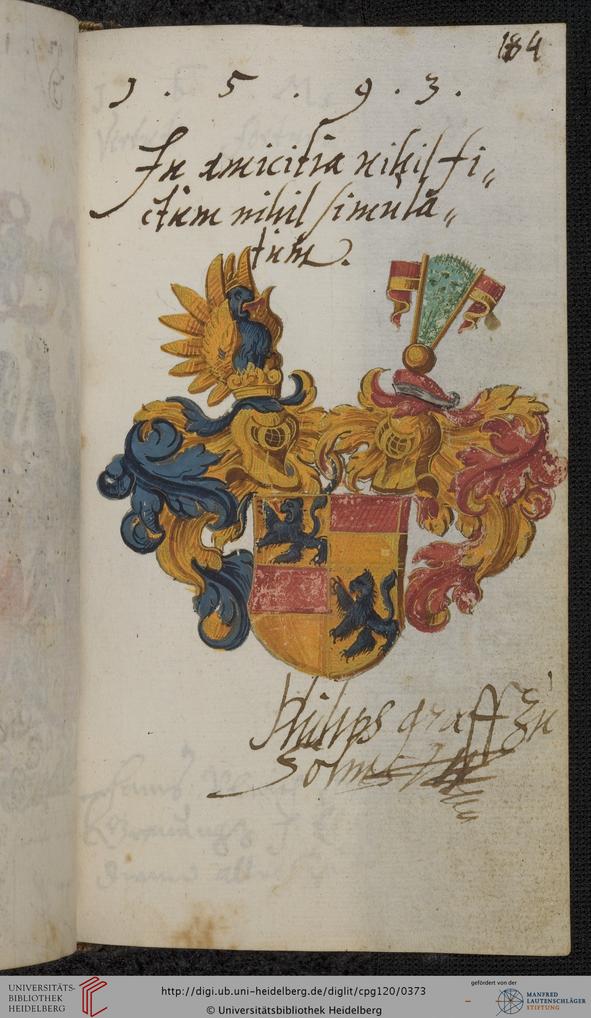 184
1 . 5 . 9 . 3 .
In amicitia nihil fi„
ctum nihil simula„
tum.
Philips graff zu
Solms
UNIVERSITÄTS-
BIBLIOTHEK
HEIDELBERG
http://digi.ub.uni-heidelberg.de/diglit/cpg120/0373
© Universitätsbibliothek Heidelberg
gefördert von der
MANFRED
LAUTENSCHLÄGER
STIFTUNG